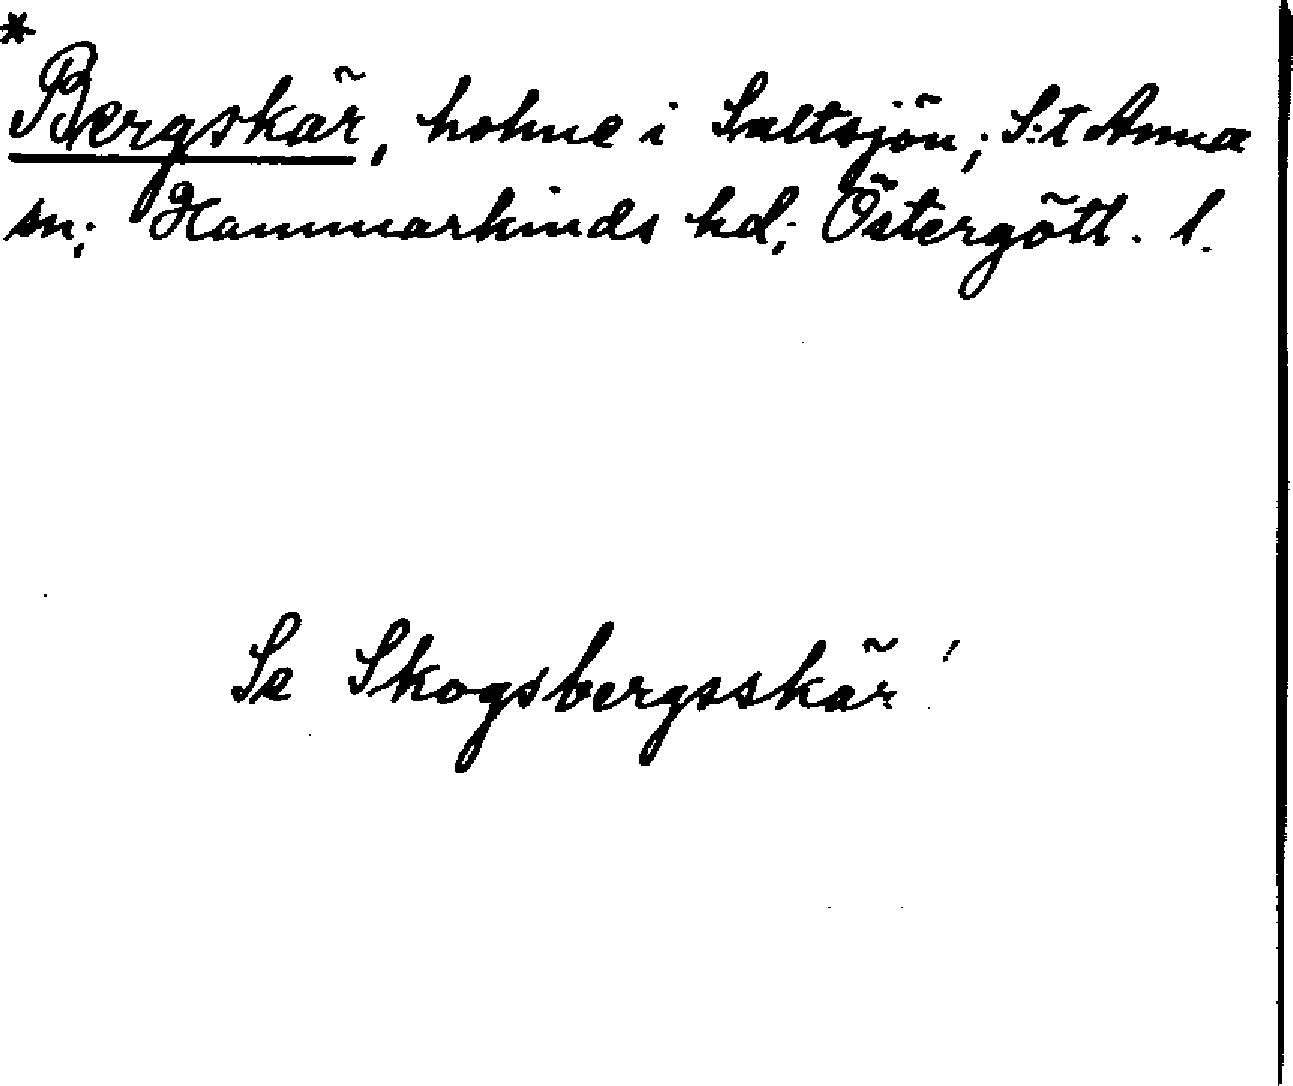 *
Bergskär, holme i Saltsjön; S:t Anna
sn; Hammarkinds hd; Östergötl. l.
Se Skogsbergsskär!